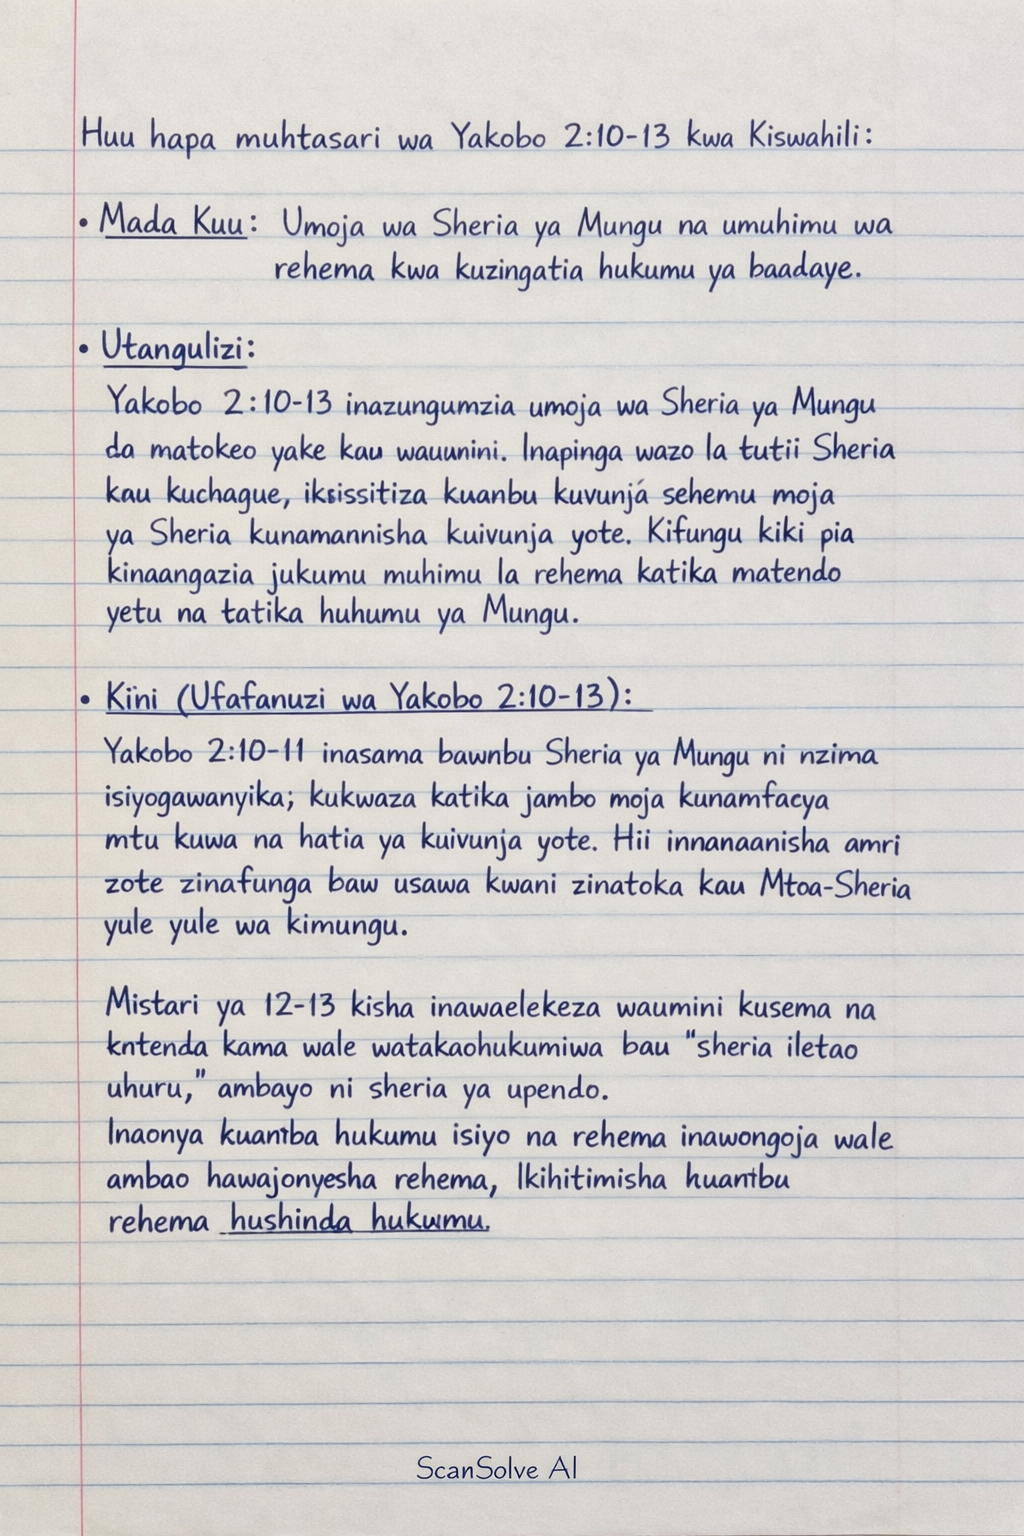 Huu hapa muhtasari wa Yakobo 2:10-13 kwa Kiswahili:
• Mada Kuu: Umoja wa Sheria ya Mungu na umuhimu wa
rehema kwa kuzingatia hukumu ya baadaye.
• Utangulizi:
Yakobo 2:10-13 inazungumzia umoja wa Sheria ya Mungu
da matokeo yake kau wauunini. Inapinga wazo la tutii Sheria
kau kuchague, iksissitiza kuanbu kuvunjá sehemu moja
ya Sheria kunamannisha kuivunja yote. Kifungu kiki pia
kinaangazia jukumu muhimu la rehema katika matendo
yetu na tatika huhumu ya Mungu.
• Kini (Ufafanuzi wa Yakobo 2:10-13):
Yakobo 2:10-11 inasama bawnbu Sheria ya Mungu ni nzima
isiyogawanyika; kukwaza katika jambo moja kunamfacya
mtu kuwa na hatia ya kuivunja yote. Hii innanaanisha amri
zote zinafunga baw usawa kwani zinatoka kau Mtoa-Sheria
yule yule wa kimungu.
Mistari ya 12-13 kisha inawaelekeza waumini kusema na
kntenda kama wale watakaohukumiwa bau "sheria iletao
uhuru," ambayo ni sheria ya upendo.
Inaonya kuantba hukumu isiyo na rehema inawongoja wale
ambao hawajonyesha rehema, Ikihitimisha huantbu
rehema hushinda hukumu.
ScanSolve AI